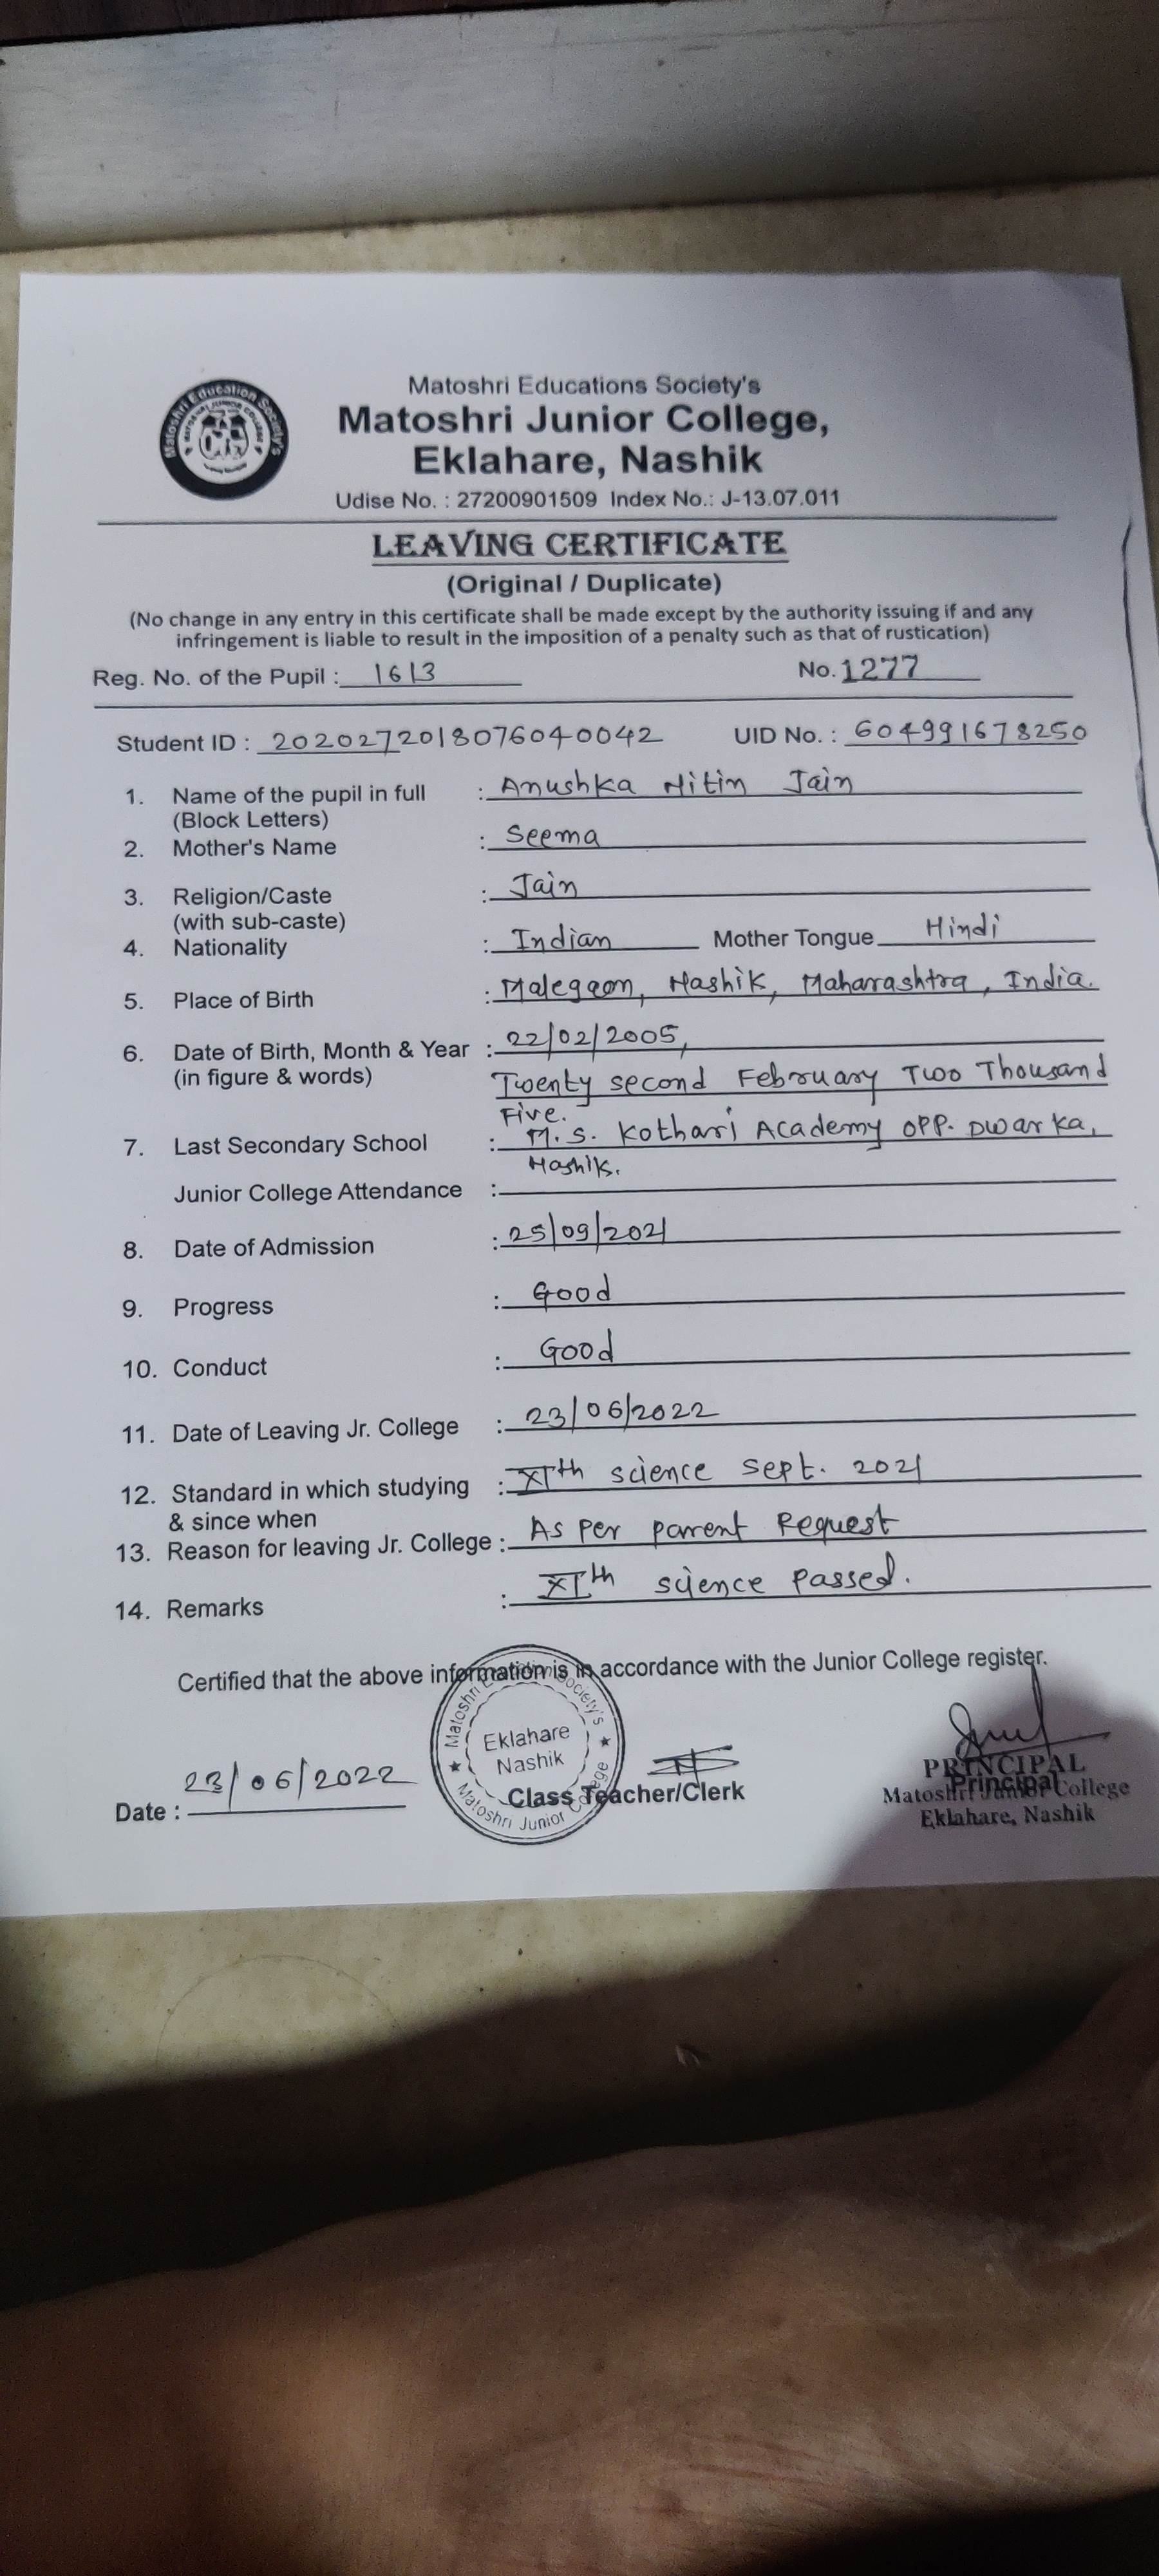 Matoshri Educations Society's
Matoshri Junior College,
Eklahare, Nashik
Udise No. : 27200901509 Index No.: J-13.07.011
LEAVING CERTIFICATE
(Original / Duplicate)
(No change in any entry in this certificate shall be made except by the authority issuing if and any
infringement is liable to result in the imposition of a penalty such as that of rustication)
Reg. No. of the Pupil : 1613 No. 1277
Student ID : 2020272018076040042 UID No. : 604991678250
1. Name of the pupil in full : Anushka Nitin Jain
(Block Letters)
2. Mother's Name : Seema
3. Religion/Caste : Jain
(with sub-caste)
4. Nationality : Indian Mother Tongue Hindi
5. Place of Birth : Malegaon, Nashik, Maharashtra, India.
6. Date of Birth, Month & Year : 22/02/2005,
(in figure & words) Twenty second February Two Thousand
Five.
7. Last Secondary School : M.S. Kothari Academy opp. Dwarka,
Nashik.
Junior College Attendance :
8. Date of Admission : 25/09/2021
9. Progress : Good
10. Conduct : Good
11. Date of Leaving Jr. College : 23/06/2022
12. Standard in which studying : XIth science Sept. 2021
& since when
13. Reason for leaving Jr. College : As per parent Request
14. Remarks : XIth science passed.
Certified that the above information is in accordance with the Junior College register.
Matoshri Education Society's
Eklahare
Nashik
Matoshri Junior College
Date : 23/06/2022
Class Teacher/Clerk
PRINCIPAL
Principal
Matoshri Junior College
Eklahare, Nashik